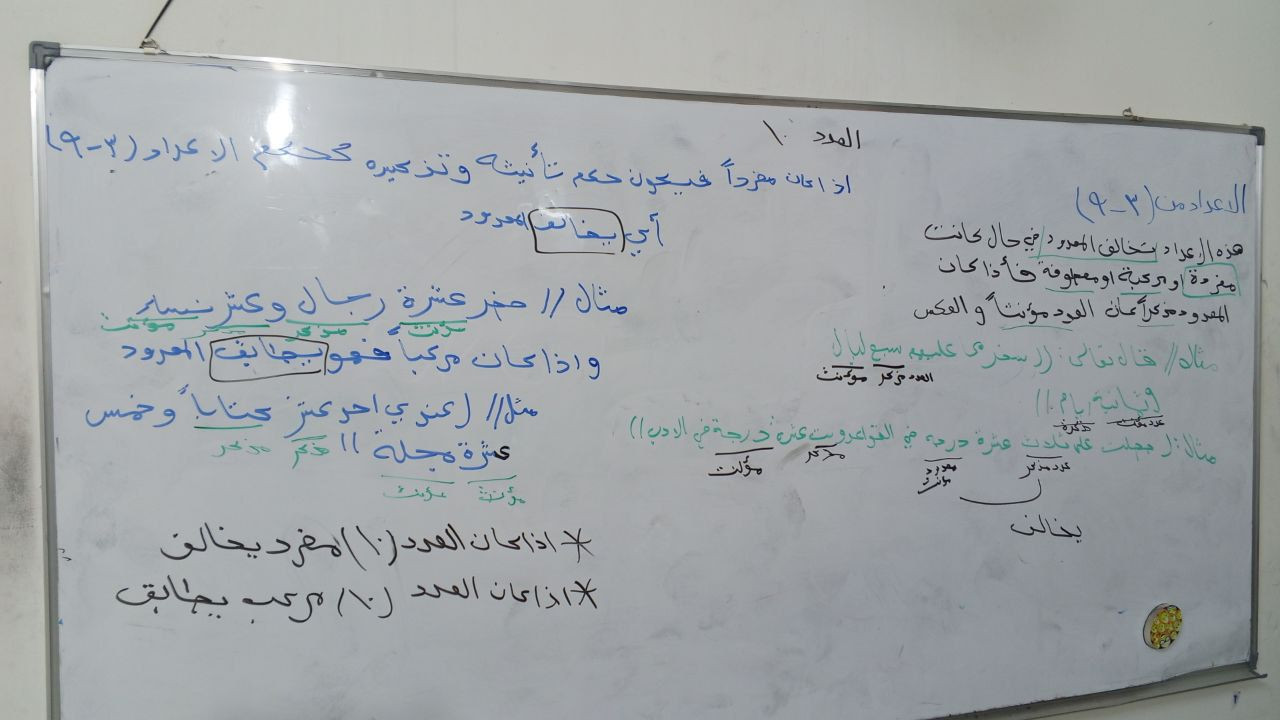 الاعداد من (٣-٩)
هذه الإعداد تخالف المعدود في حال كانت
مفردة او مركبة او معطوفة فأذا كان
المعدود مذكراً كان العدد مؤنثاً والعكس
مثال// قال تعالى: ((سخرها عليهم سبع ليال
العدد مذكر مؤنث
وثمانية ايام))
عدد مؤنث مذكرة
مثال: ( حصلت على ثلاث عشرة درجة في القواعد وست عشرة درجة في الادب))
عدد مذكر معدود مؤنث مذكر مؤنث
يخالف
العدد ١٠
اذا كان مفرداً فيكون حكم تأنيثه وتذكيره كحكم الإعداد (٣-٩)
أي يخالف المعدود
مثال// حضر عشرة رجال وعشر نساء
مؤنث مذكر مذكر مؤنث
واذا كان مركباً فهو يطابق المعدود
مثل// (عندي احد عشر كتاباً وخمس
مذكر مذكر
عشرة مجلة))
مؤنث مؤنث
* اذا كان العدد (١٠) مفرد يخالف
* اذا كان العدد (١٠) مركب يطابق